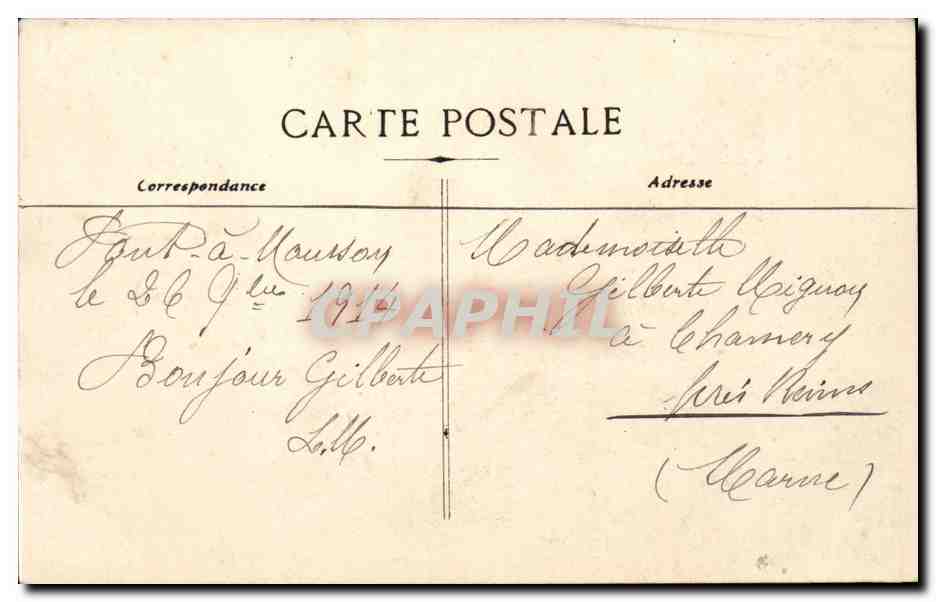 CARTE POSTALE
Correspondance
Adresse
Pont-à-Mousson
le 26 9bre 1914
Bonjour Gilberte
L.M.
Mademoiselle
Gilberte Mignon
à Chamery
près Reims
(Marne)
CPAPHIL